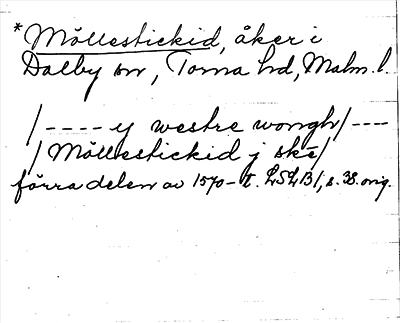 *Möllestickid, åker i
Dalby sn, Torna hd, Malm. l.
/---- y westre wongh/----
/Möllestickid j skē/
förra delen av 1570-t. LSLB1, s. 38. orig.